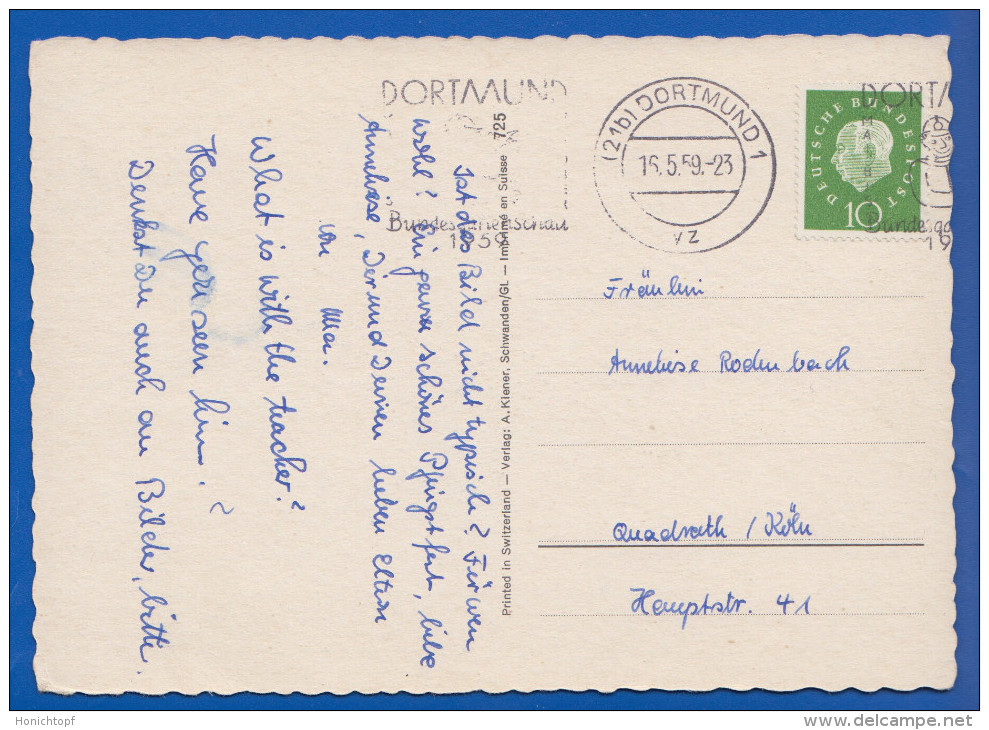 DORTMUND
Bundesgartenschau
1959
(21b) DORTMUND 1
16.5.59.-23
vz
DEUTSCHE BUNDESPOST
10
DORT
Bundesga
19
Ist das Bild nicht typisch? Für wen
wohl? Ein ganz schönes Pfingstfest, liebe
Anneliese, Dir und Deinen lieben Eltern
von
What is with the teacher?
Have you seen him?
Denkst Du auch an Bilder, bitte.
Printed in Switzerland — Verlag: A. Kiener, Schwanden/GL — Imprimé en Suisse 725
Fräulein
Anneliese Rodenbach
Quadrath / Köln
Hauptstr. 41
Honichtopf
http://www.delcampe.net